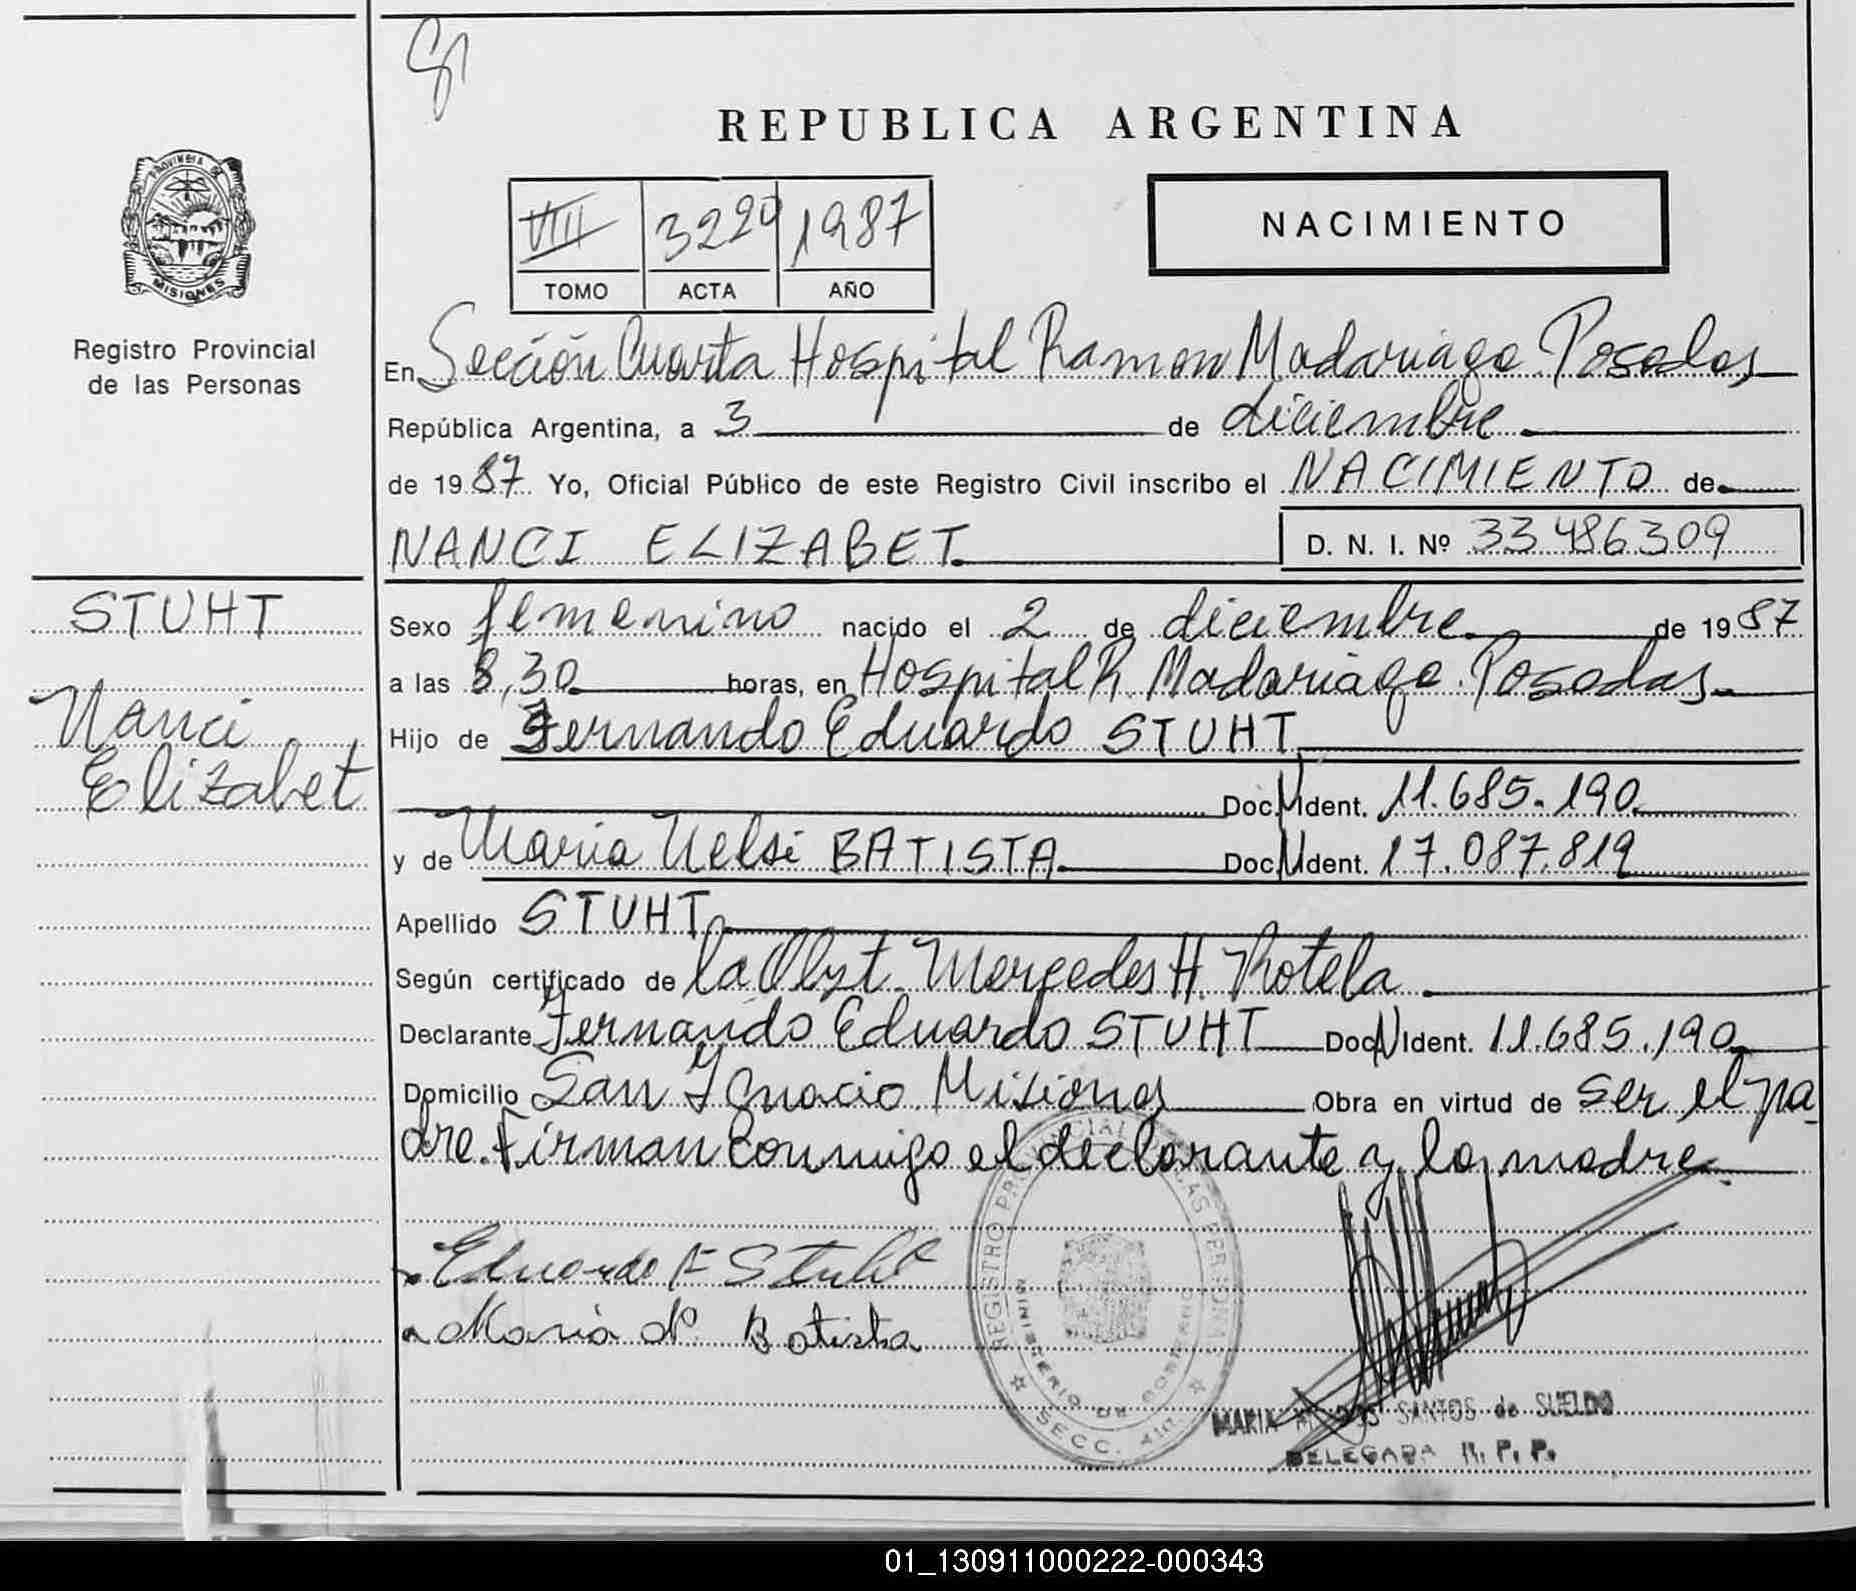 REPUBLICA ARGENTINA
PROVINCIA DE
MISIONES
Registro Provincial
de las Personas
VIII 1987
TOMO ACTA AÑO
NACIMIENTO
En Sección Cuarta Hospital Ramon Madariaga. Posadas
República Argentina, a 3 de diciembre
de 1987 Yo, Oficial Público de este Registro Civil inscribo el NACIMIENTO de
NANCI ELIZABET D. N. I. Nº 33486309
STUHT
Nanci
Elizabet
Sexo femenino nacido el 2 de diciembre de 1987
a las 8,30 horas, en Hospital R. Madariaga. Posadas
Hijo de Fernando Eduardo STUHT
Doc. N Ident. 11.685.190
y de Maria Nelsi BATISTA Doc. N Ident. 17.087.819
Apellido STUHT
Según certificado de la Obst. Mercedes H. Rotela
Declarante Fernando Eduardo STUHT Doc. N Ident. 11.685.190
Domicilio San Ignacio. Misiones Obra en virtud de ser el pa
dre. Firman conmigo el declarante y la madre
Eduardo F Stuht
Maria N. Batista
REGISTRO PROVINCIAL DE LAS PERSONAS
MINISTERIO DE GOBIERNO
SECC. 4ta.
MARIA DOS SANTOS de SUELDO
DELEGADA R. P. P.
01_130911000222-000343